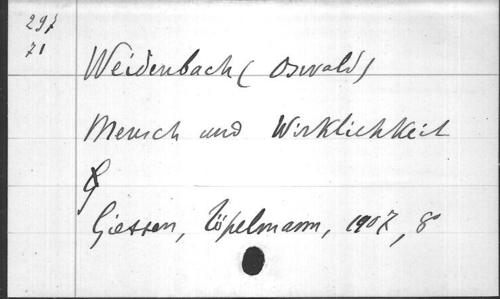 297
71
Weidenbach (Oswald)
Mensch und Wirklichkeit
Giessen, Töpelmann, 1907, 8°